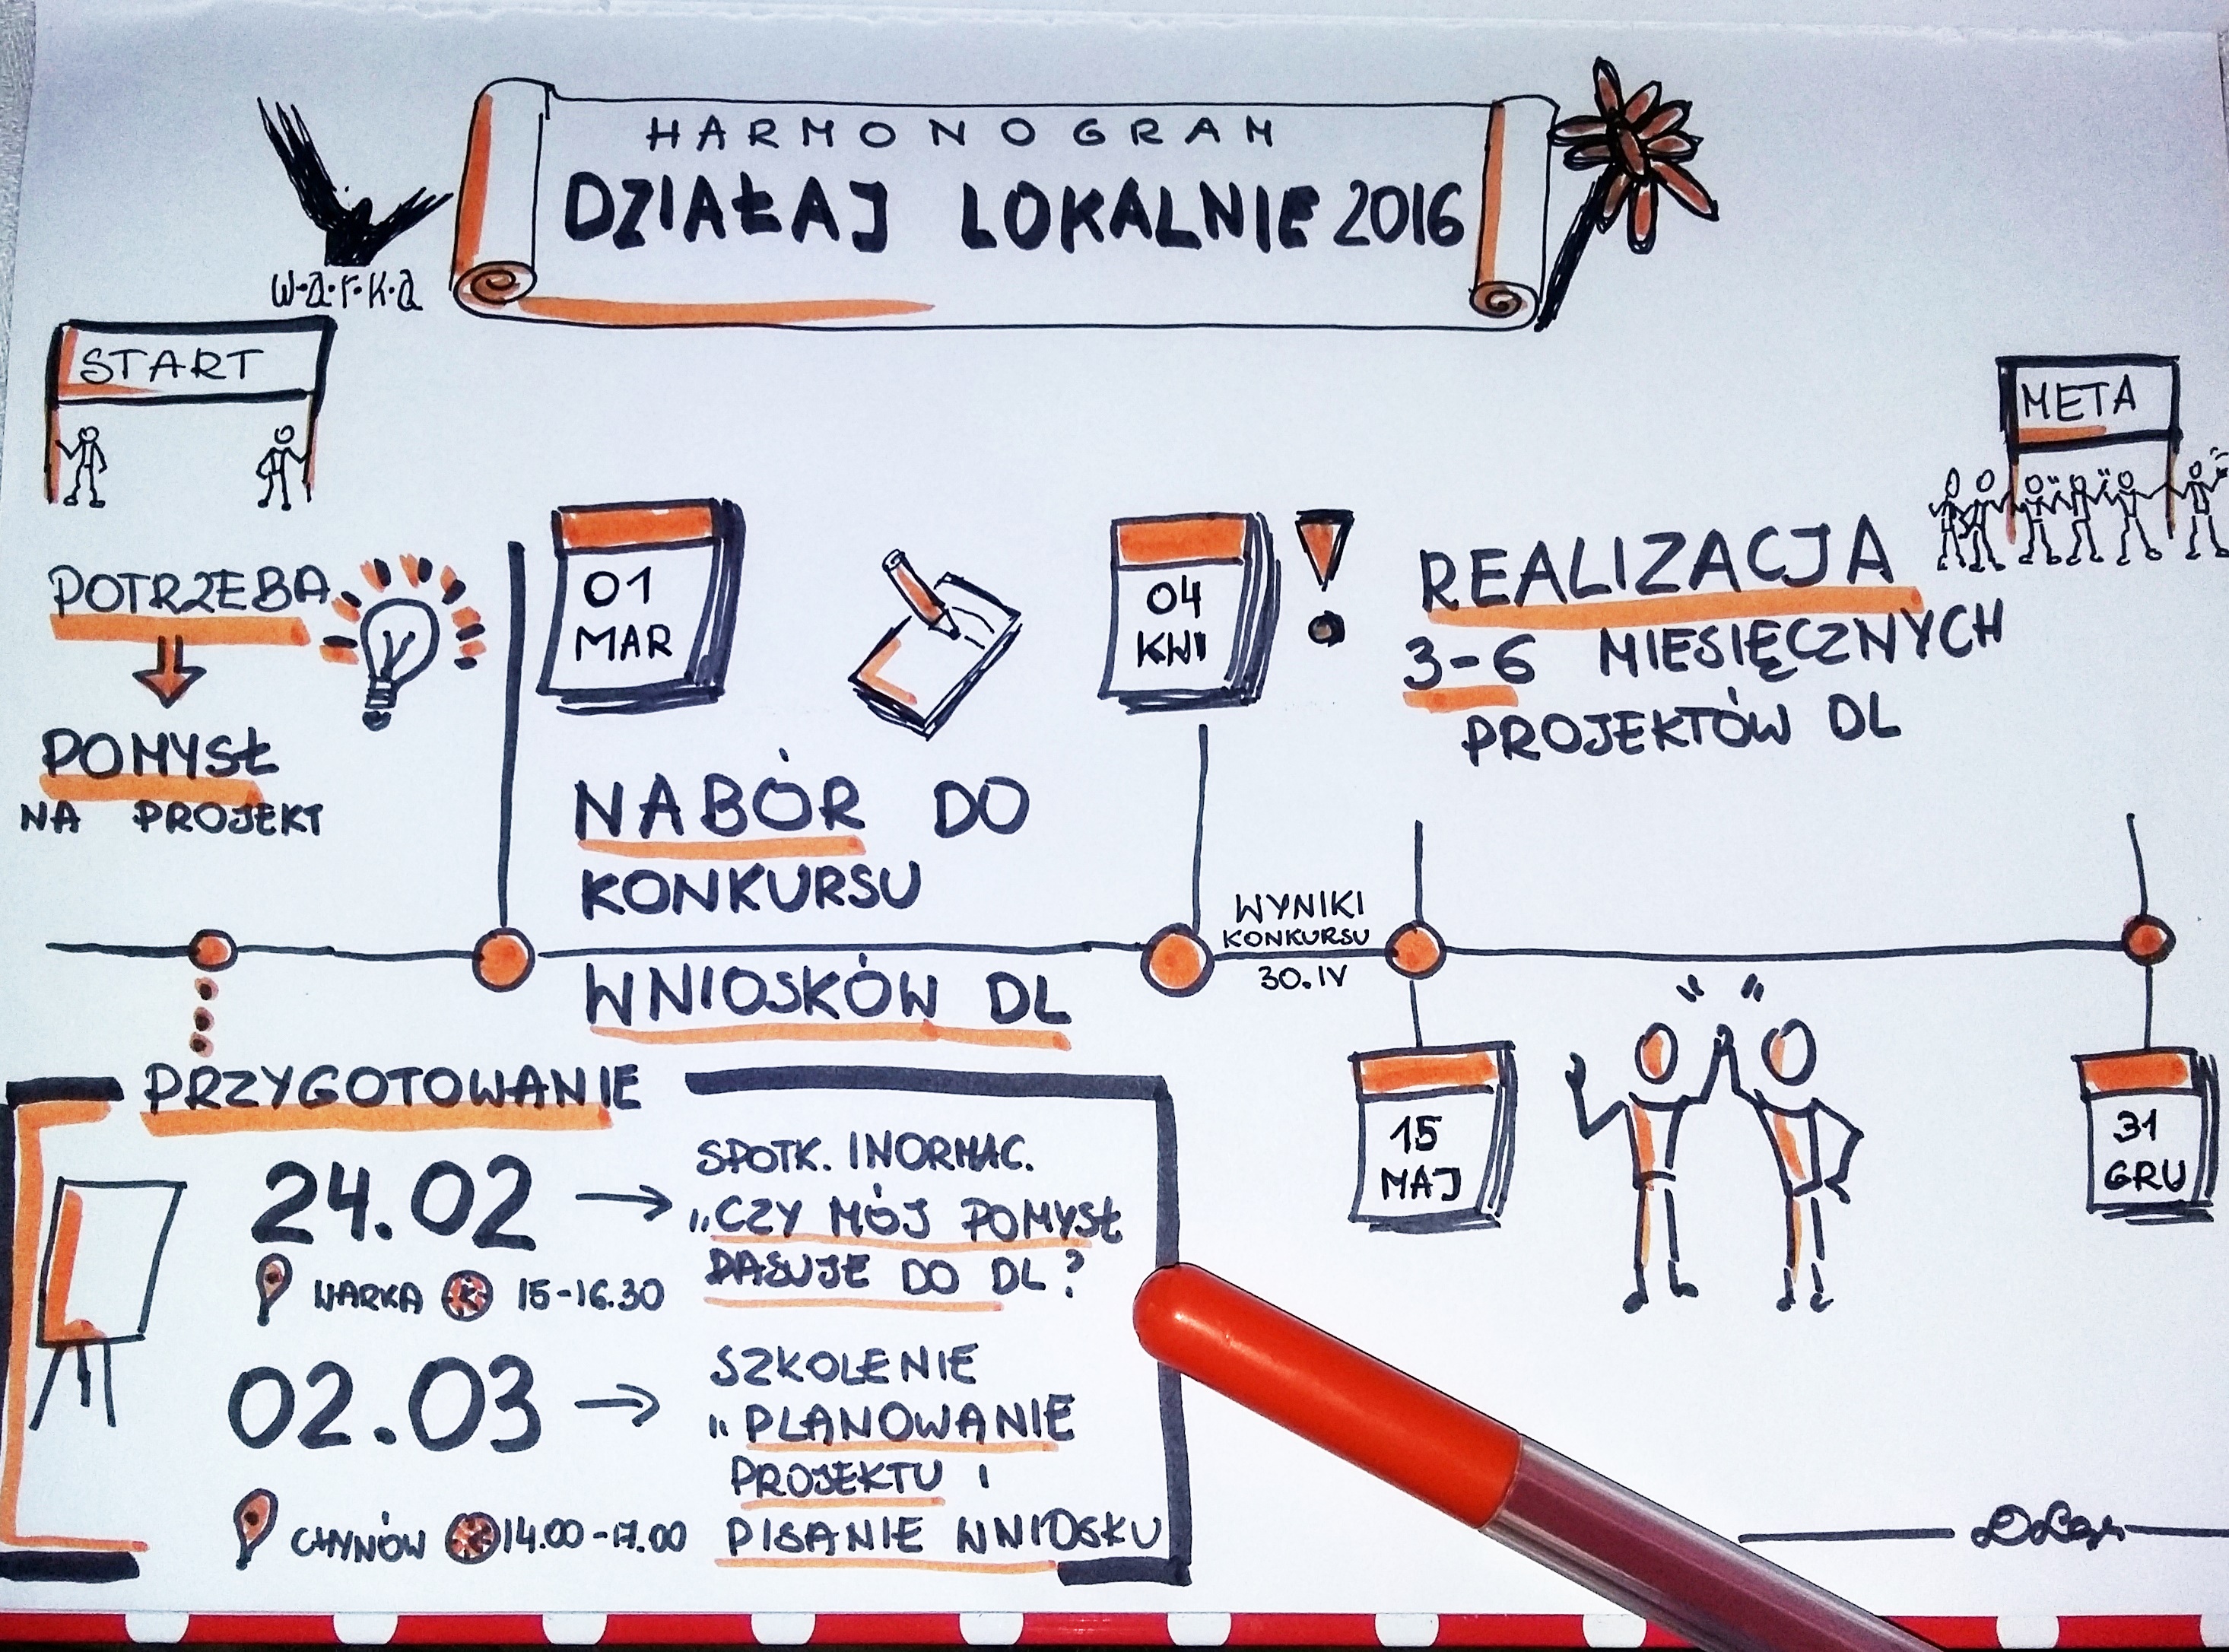 HARMONOGRAM
DZIAŁAJ LOKALNIE 2016
W.a.r.k.a
START
META
POTRZEBA
POMYSŁ
NA PROJEKT
01
MAR
NABÓR DO
KONKURSU
WNIOSKÓW DL
04
KWI
!
REALIZACJA
3-6 MIESIĘCZNYCH
PROJEKTÓW DL
WYNIKI
KONKURSU
30.IV
15
MAJ
31
GRU
PRZYGOTOWANIE
24.02 → SPOTK. INORMAC.
„CZY MÓJ POMYSŁ
PASUJE DO DL?
WARKA 15-16.30
02.03 → SZKOLENIE
„PLANOWANIE
PROJEKTU I
PISANIE WNIOSKU
CHYNÓW 14.00-17.00